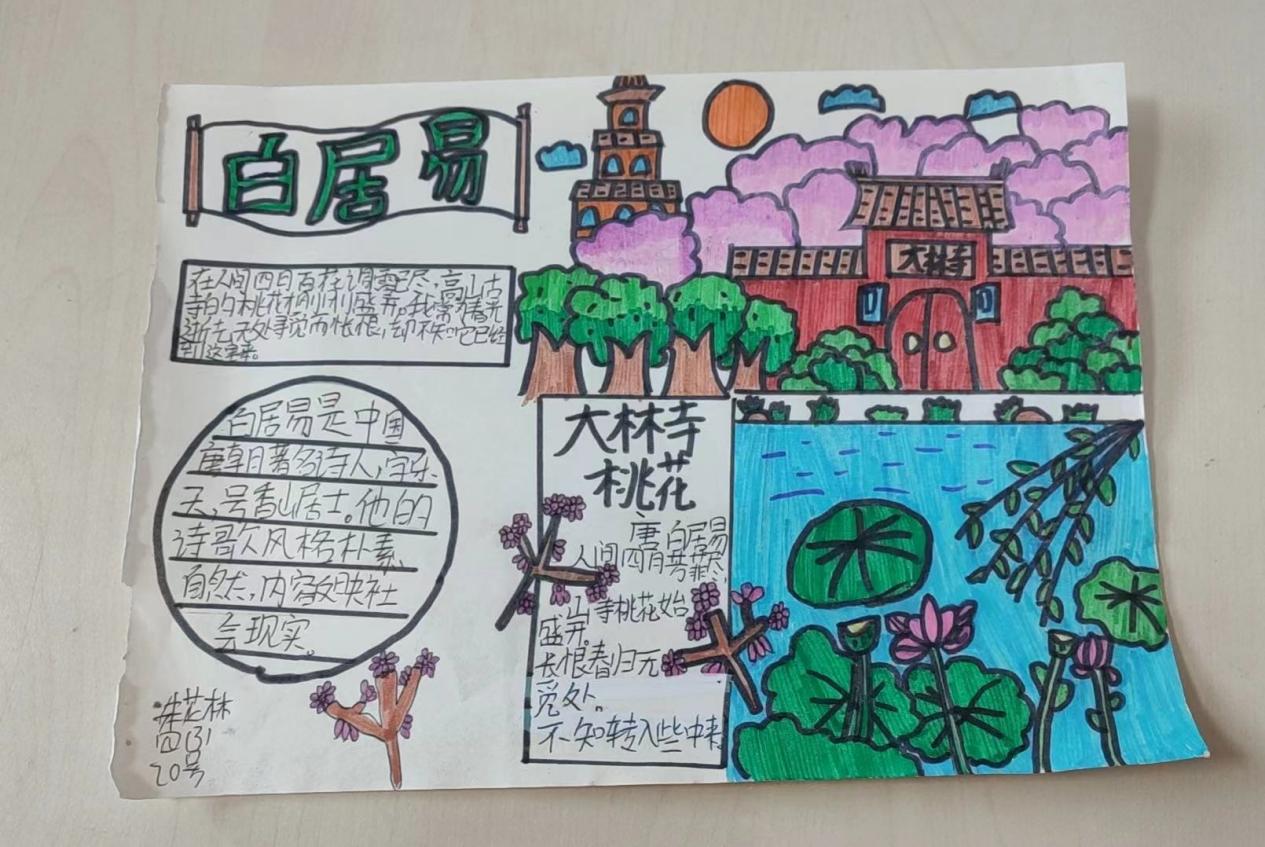 白居易
大林寺
在人间四月百花凋零已尽,高山古
寺的桃花刚刚盛开。我常为春光
逝去无处寻觅而怅恨,却不知它已经
到这里来。
白居易是中国
唐朝著名诗人,字乐
天,号香山居士。他的
诗歌风格朴素
自然,内容反映社
会现实。
大林寺
桃花
唐 白居易
人间四月芳菲尽,
山寺桃花始
盛开。
长恨春归无
觅处。
不知转入些中来
花林
四(3)
20号